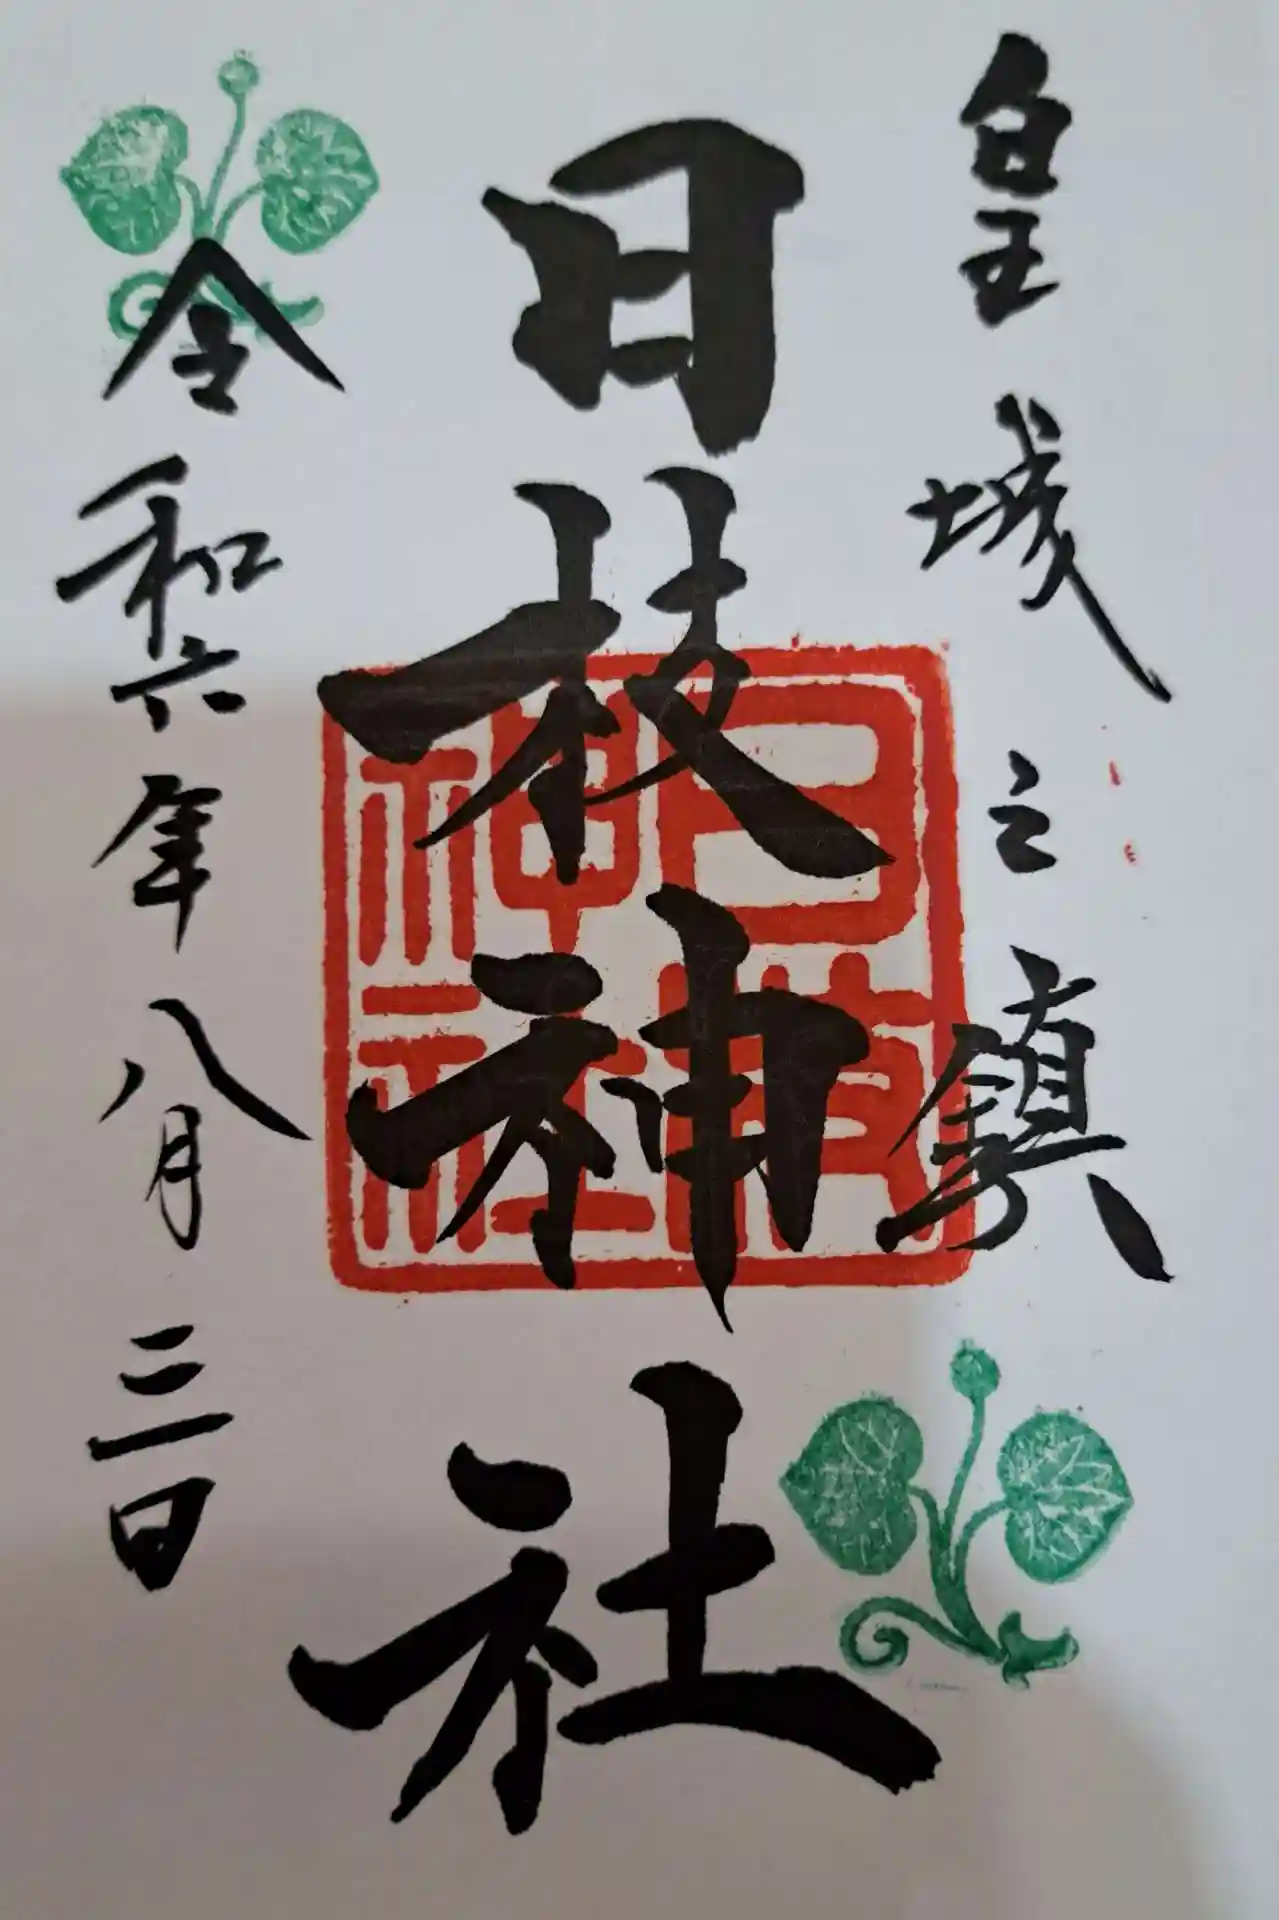 皇城之鎮
日枝神社
日枝神社
令和六年八月三日